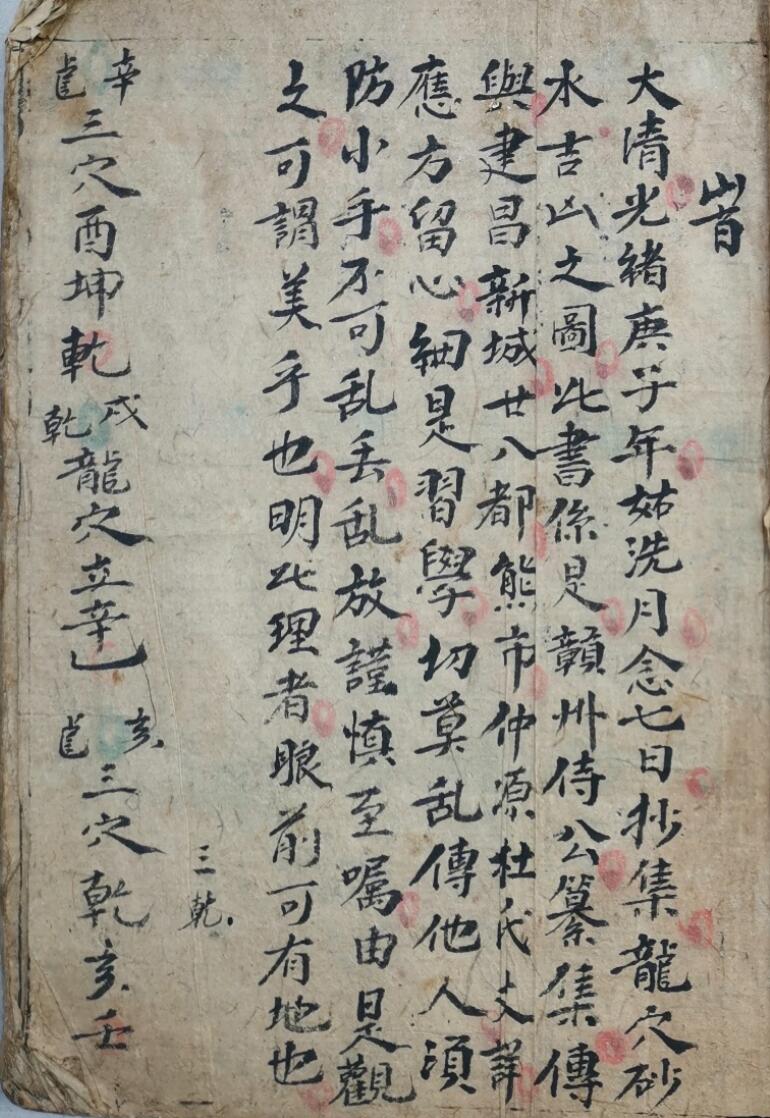 峕
大清光緒庚子年姑洗月念七日抄集龍穴砂
水吉凶之圖此書係是贛州侍公纂集傳
與建昌新城廿八都熊市仲源杜氏丈詳
應方留心細是習學切莫乱傳他人須
防小手不可乱丢乱放謹慎至嘱由是觀
之可謂美乎也明此理者眼前可有地也
三乾
辛三穴酉坤乾戌乾龍穴立辛亥三穴乾亥壬